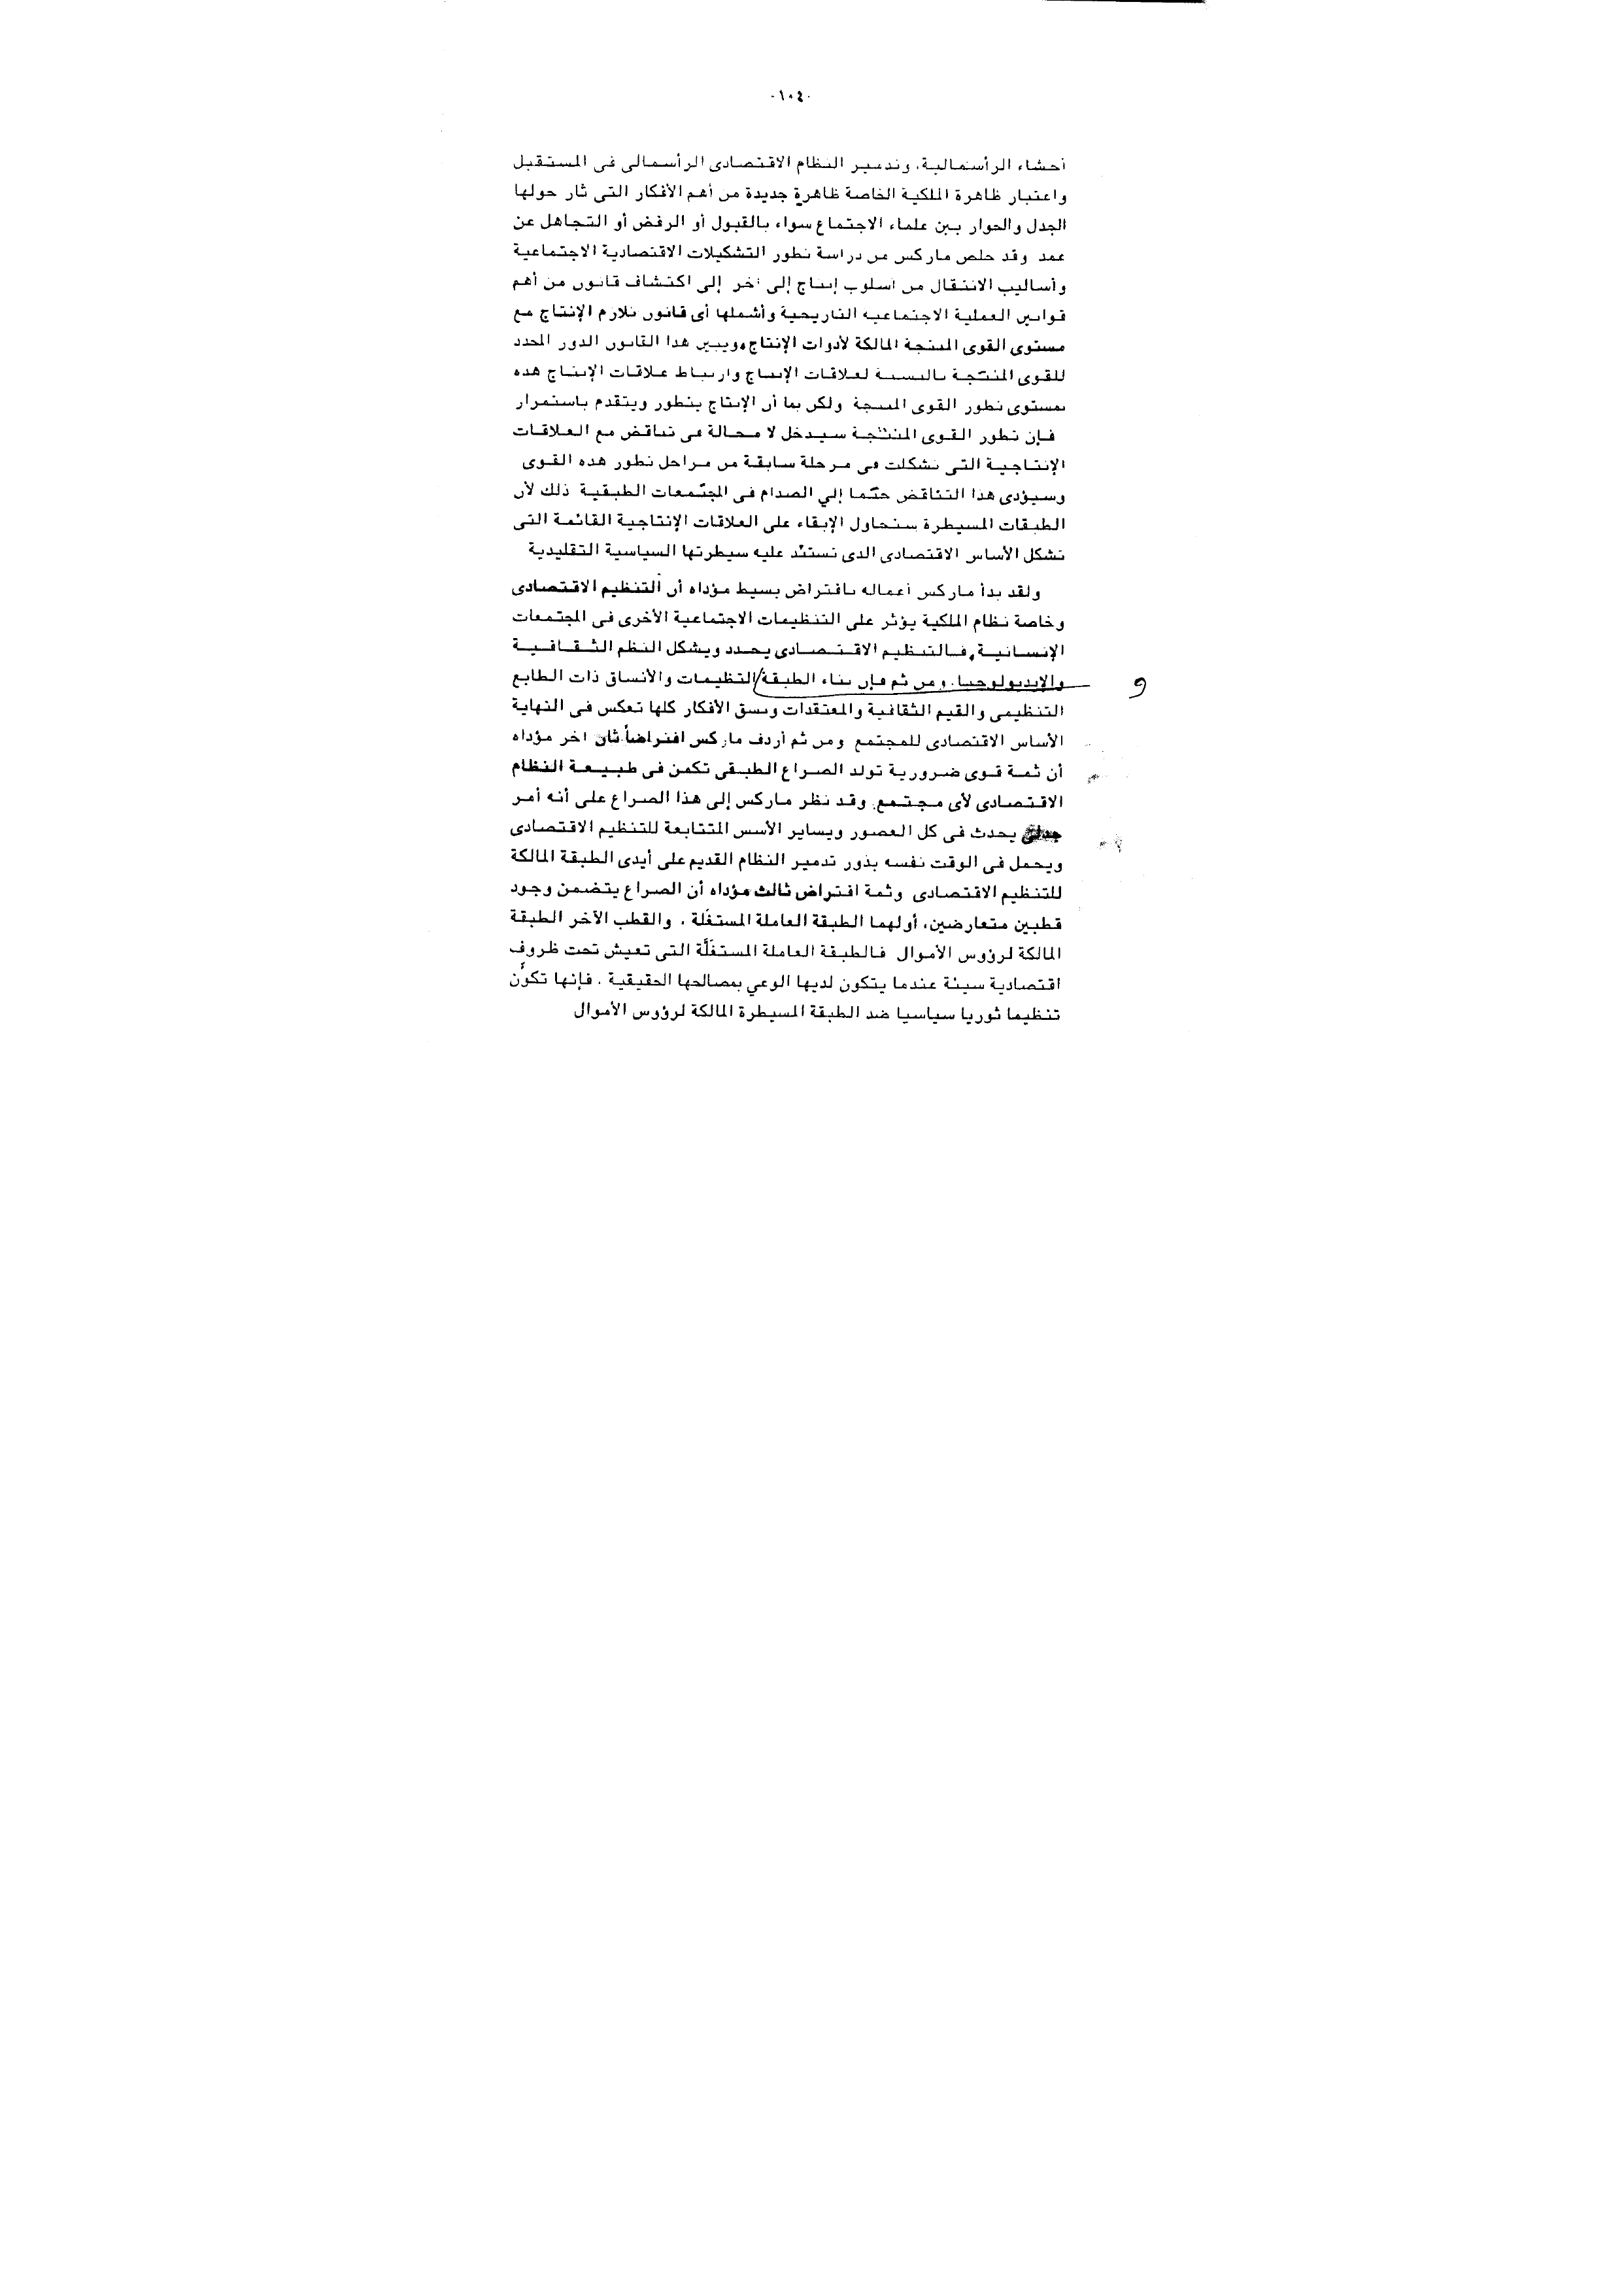 -١٠٤-
أحشاء الرأسمالية، وتدمير النظام الاقتصادى الرأسمالى فى المستقبل
واعتبار ظاهرة الملكية الخاصة ظاهرة جديدة من أهم الأفكار التى ثار حولها
الجدل والحوار بين علماء الاجتماع سواء بالقبول أو الرفض أو التجاهل عن
عمد وقد خلص ماركس من دراسة تطور التشكيلات الاقتصادية الاجتماعية
وأساليب الانتقال من أسلوب إنتاج إلى آخر إلى اكتشاف قانون من أهم
قوانين العملية الاجتماعيه التاريخية وأشملها أى قانون تلازم الإنتاج مع
مستوى القوى المنتجة المالكة لأدوات الإنتاج، ويبين هذا القانون الدور المحدد
للقوى المنتجة بالنسبة لعلاقات الإنتاج وارتباط علاقات الإنتاج هذه
بمستوى تطور القوى المنتجة ولكن بما أن الإنتاج يتطور ويتقدم باستمرار
فإن تطور القوى المنتجة سيدخل لا محالة فى تناقض مع العلاقات
الإنتاجية التى تشكلت فى مرحلة سابقة من مراحل تطور هذه القوى
وسيؤدى هذا التناقض حتما إلي الصدام فى المجتمعات الطبقية ذلك لأن
الطبقات المسيطرة ستحاول الإبقاء على العلاقات الإنتاجية القائمة التى
تشكل الأساس الاقتصادى الذى تستند عليه سيطرتها السياسية التقليدية
ولقد بدأ ماركس أعماله بافتراض بسيط مؤداه أن التنظيم الاقتصادى
وخاصة نظام الملكية يؤثر على التنظيمات الاجتماعية الأخرى فى المجتمعات
الإنسانية، فالتنظيم الاقتصادى يحدد ويشكل النظم الثقافية
والإيديولوجيا. ومن ثم فإن بناء الطبقة التنظيمات والأنساق ذات الطابع و
التنظيمى والقيم الثقافية والمعتقدات ونسق الأفكار كلها تعكس فى النهاية
الأساس الاقتصادى للمجتمع ومن ثم أردف ماركس افتراضاً ثان اخر مؤداه
أن ثمة قوى ضرورية تولد الصراع الطبقى تكمن فى طبيعة النظام
الاقتصادى لأى مجتمع. وقد نظر ماركس إلى هذا الصراع على أنه أمر
يحدث فى كل العصور ويساير الأسس المتتابعة للتنظيم الاقتصادى
ويحمل فى الوقت نفسه بذور تدمير النظام القديم على أيدى الطبقة المالكة
للتنظيم الاقتصادى وثمة افتراض ثالث مؤداه أن الصراع يتضمن وجود
قطبين متعارضين، أولهما الطبقة العاملة المستغَلة ، والقطب الآخر الطبقة
المالكة لرؤوس الأموال فالطبقة العاملة المستغَلَّة التى تعيش تحت ظروف
اقتصادية سيئة عندما يتكون لديها الوعي بمصالحها الحقيقية ، فإنها تكوِّن
تنظيما ثوريا سياسيا ضد الطبقة المسيطرة المالكة لرؤوس الأموال